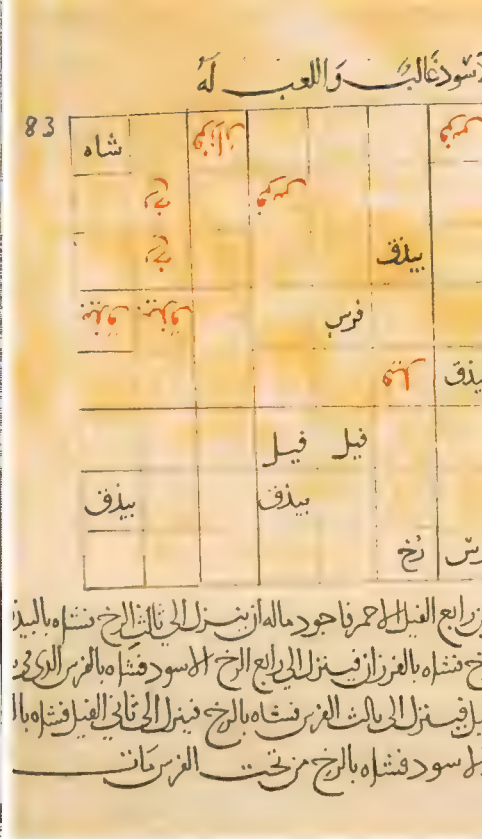 لاسود غالب واللعب له
83
شاه فرزان فرس
رخ فرس
رخ بيذق
بيذق بيذق فرس
فيل بيذق
فيل فيل
بيذق بيذق
رخ
رابع الفيل الاحمر فاجود ماله ان ينزل الى ثالث الرخ فشاه بالبيذ
فشاه بالفرزان فينزل الى رابع الرخ الاسود فشاه بالفرس الذى
فينزل الى ثالث الفرس فشاه بالرخ فينزل الى ثانى الفيل فشاه
الاسود فشاه بالرخ من تحت الفرس مات